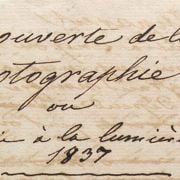 ouverte de la
otographie
ou
ie à la lumière
1837